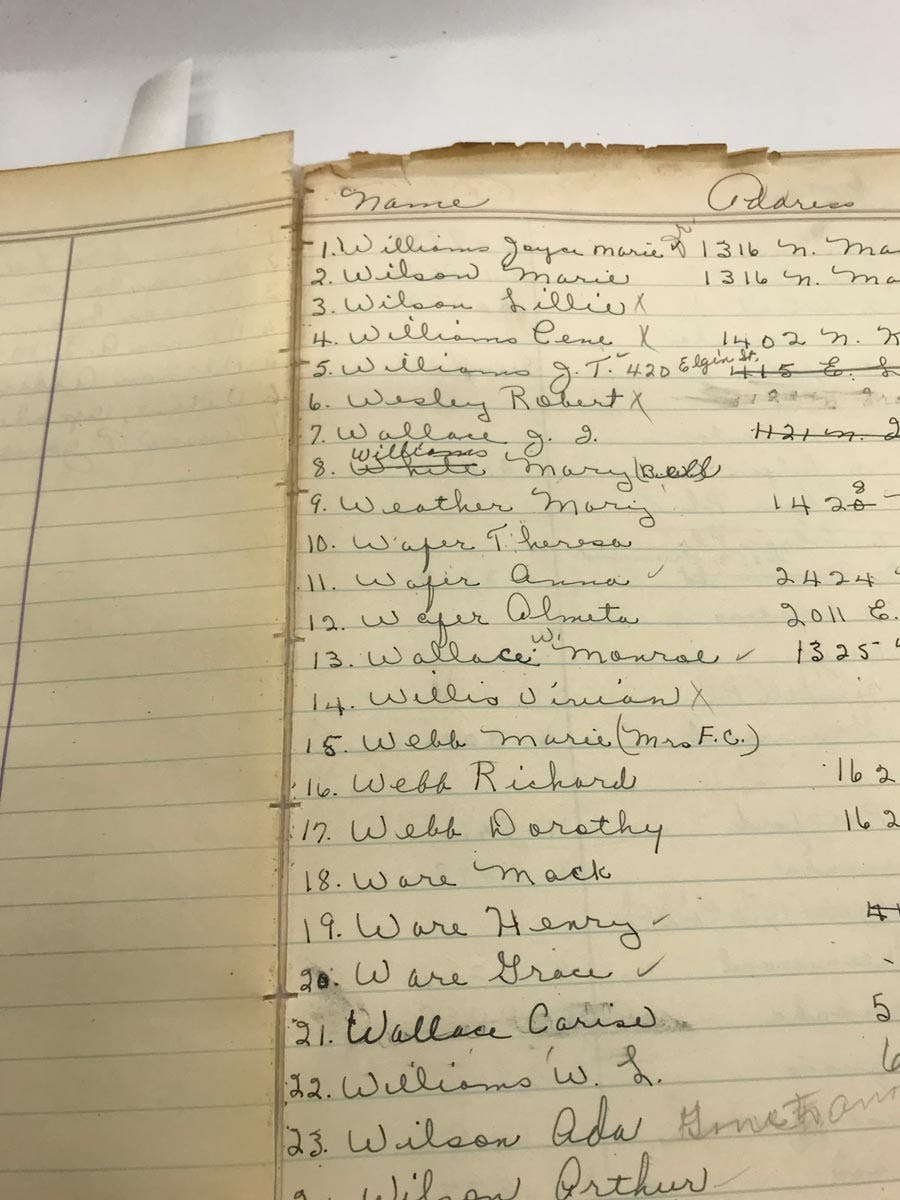 Name Address
1. Williams Joyce Marie 1316 N. Ma
2. Wilson Marie 1316 N. Ma
3. Wilson Lillie X
4. Williams Cene X 1402 N. K
5. Williams J. T. 420 Elgin St. 415 E. L
6. Wesley Robert X
7. Wallace J. J. 1121 N.
Williams
8. White Mary (Bell
8
9. Weather Mary 1420
10. Wafer Theresa
11. Wafer Anna ✓ 2424
12. Wafer Almeta 2011 E.
W.
13. Wallace Monroe ✓ 1325
14. Willis Vivian X
15. Webb Marie (Mrs F.C.)
16. Webb Richard 162
17. Webb Dorothy 162
18. Ware Mack
19. Ware Henry ✓
20. Ware Grace ✓
21. Wallace Carise 5
22. Williams W. L. 6
23. Wilson Ada
Wilson Arthur